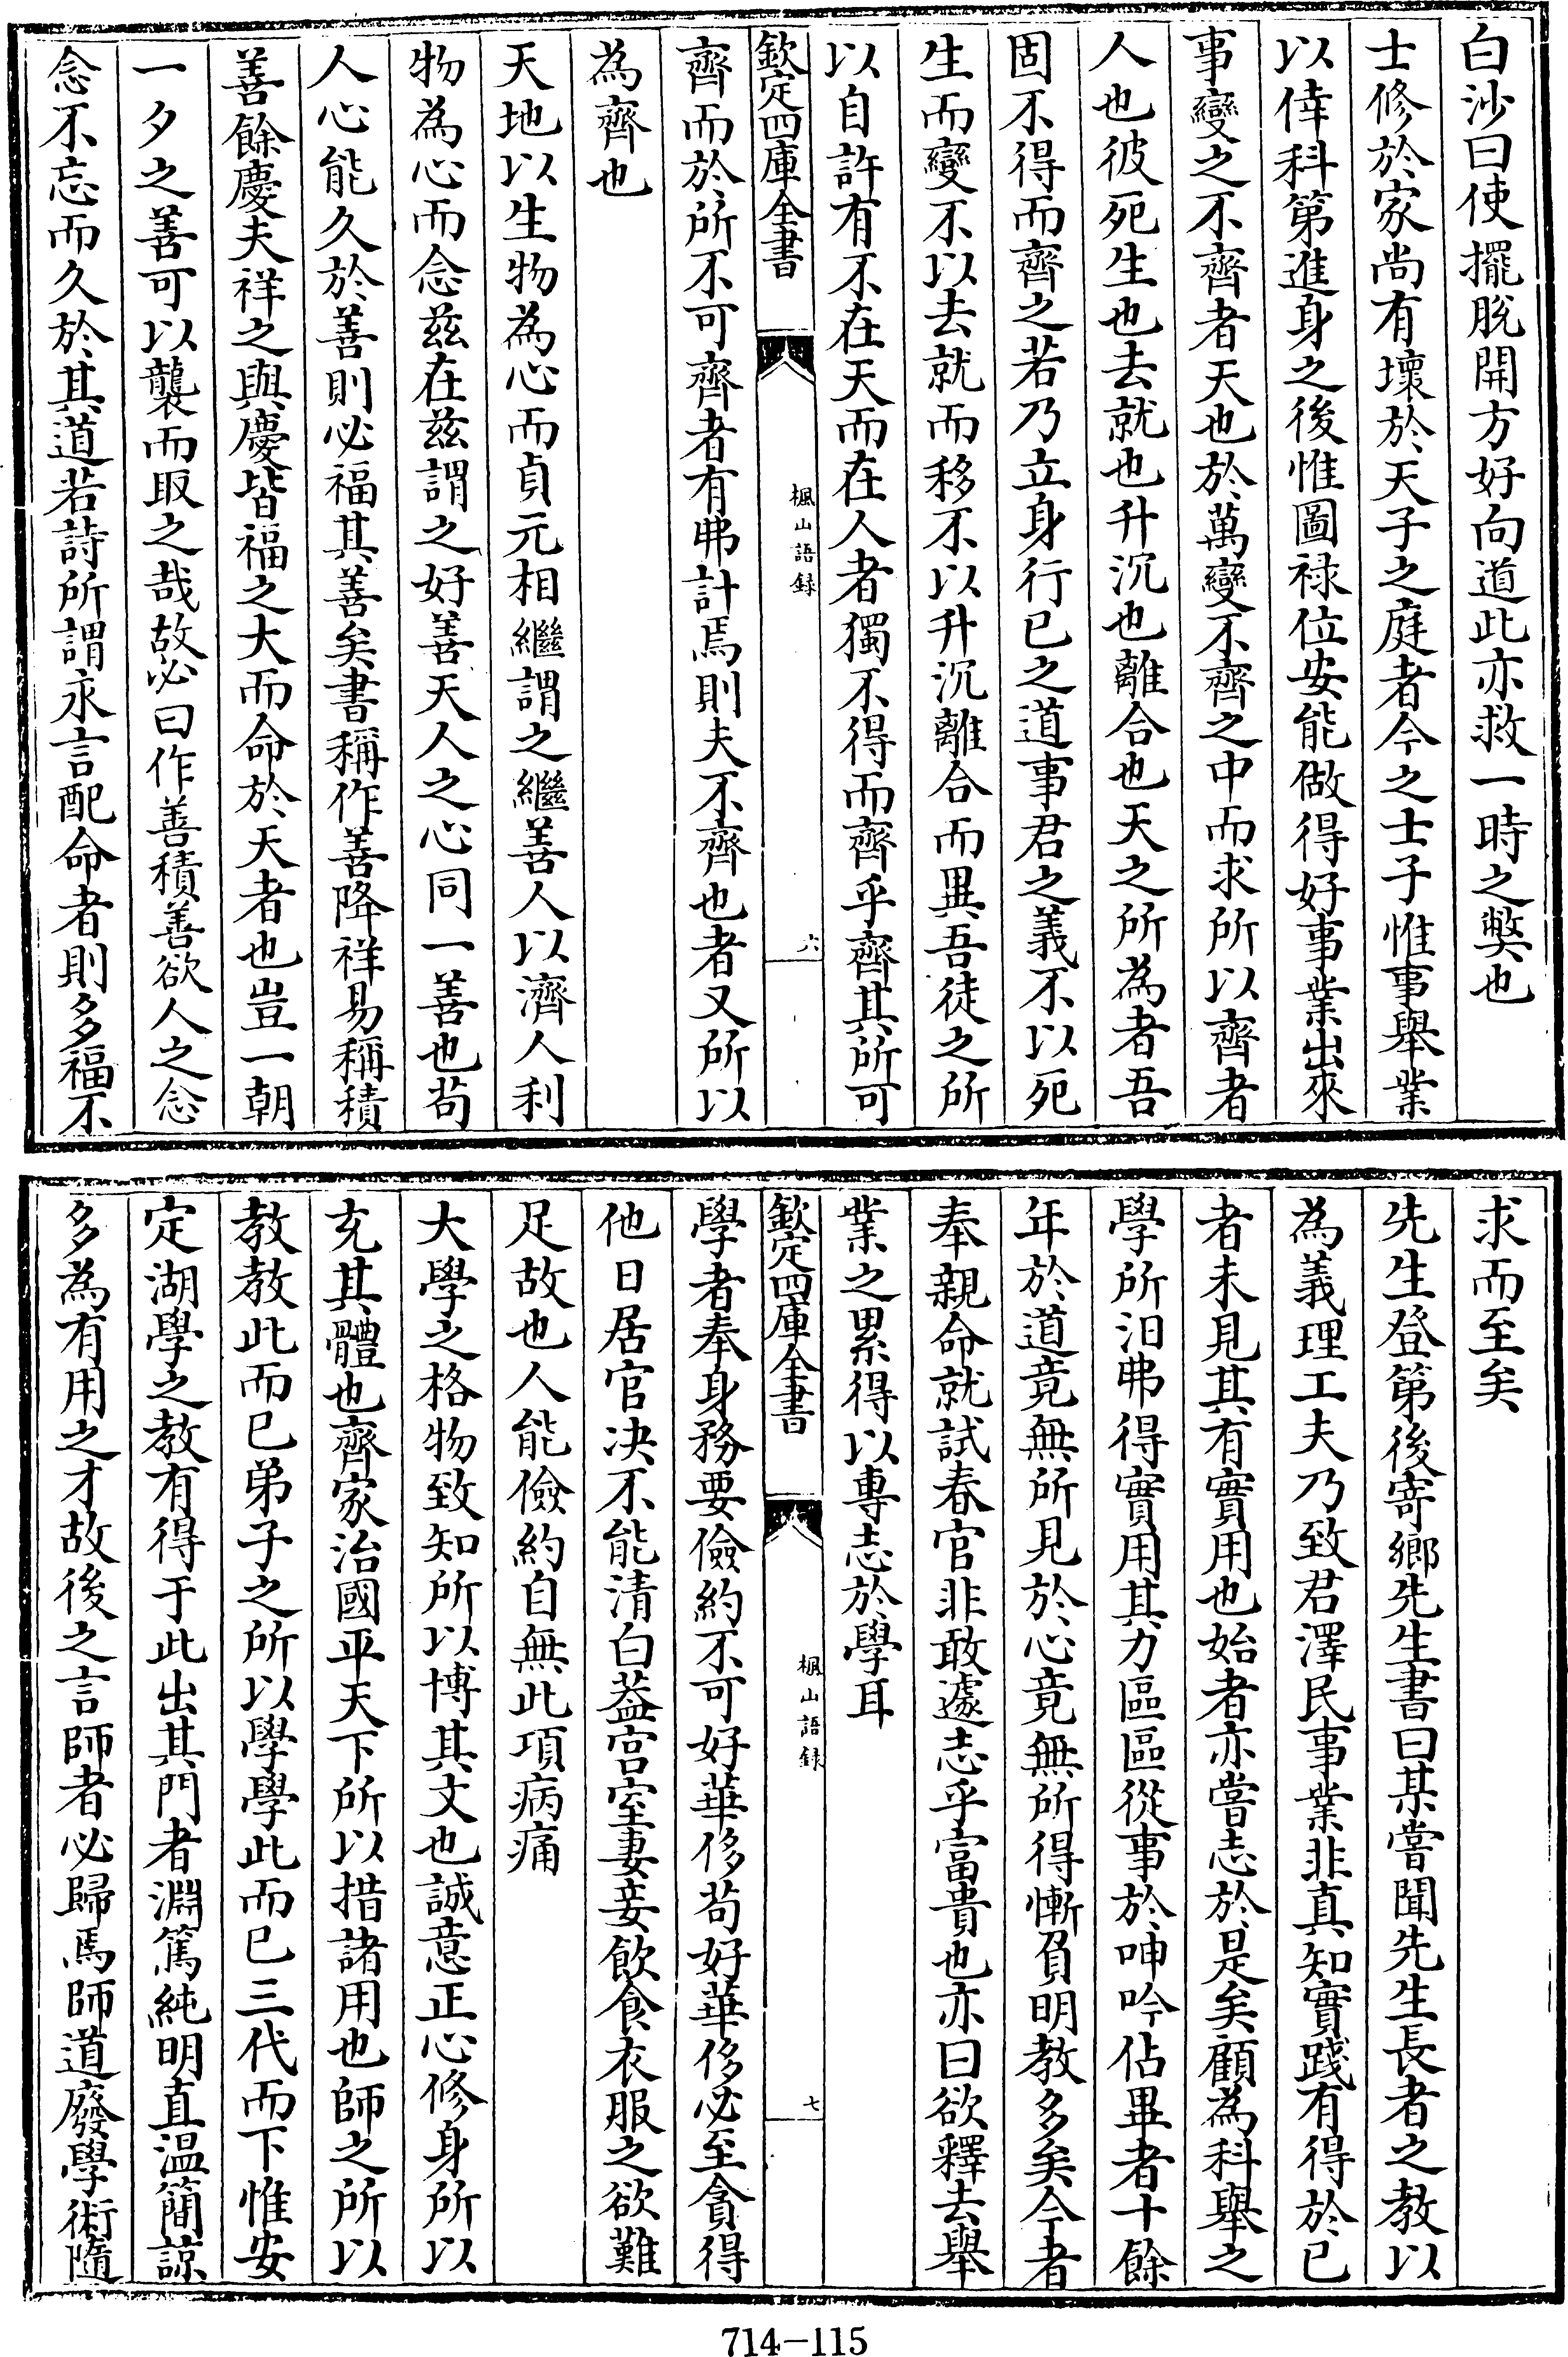 白沙曰使擺脫開方好向道此亦救一時之弊也
士修於家尚有壞於天子之庭者今之士子惟事舉業
以倖科第進身之後惟圖禄位安能做得好事業出來
事變之不齊者天也於萬變不齊之中而求所以齊者
人也彼死生也去就也升沉也離合也天之所為者吾
固不得而齊之若乃立身行已之道事君之義不以死
生而變不以去就而移不以升沉離合而異吾徒之所
以自許有不在天而在人者獨不得而齊乎齊其所可
欽定四庫全書
楓山語録
六
齊而於所不可齊者有弗計焉則夫不齊也者又所以
為齊也
天地以生物為心而貞元相繼謂之繼善人以濟人利
物為心而念兹在兹謂之好善天人之心同一善也苟
人心能久於善則必福其善矣書稱作善降祥易稱積
善餘慶夫祥之與慶皆福之大而命於天者也豈一朝
一夕之善可以襲而取之哉故必曰作善積善欲人之念
念不忘而久於其道若詩所謂永言配命者則多福不
求而至矣
先生登第後寄鄉先生書曰某嘗聞先生長者之教以
為義理工夫乃致君澤民事業非真知實踐有得於已
者未見其有實用也始者亦嘗志於是矣顧為科舉之
學所汩弗得實用其力區區從事於呻吟佔畢者十餘
年於道竟無所見於心竟無所得慚負明教多矣今者
奉親命就試春官非敢遽志乎富貴也亦曰欲釋去舉
業之累得以專志於學耳
欽定四庫全書
楓山語録
七
學者奉身務要儉約不可好華侈苟好華侈必至貪得
他日居官决不能清白葢宫室妻妾飲食衣服之欲難
足故也人能儉約自無此項病痛
大學之格物致知所以博其文也誠意正心修身所以
充其體也齊家治國平天下所以措諸用也師之所以
教教此而已弟子之所以學學此而已三代而下惟安
定湖學之教有得于此出其門者淵篤純明直温簡諒
多為有用之才故後之言師者必歸焉師道廢學術隨
714-115